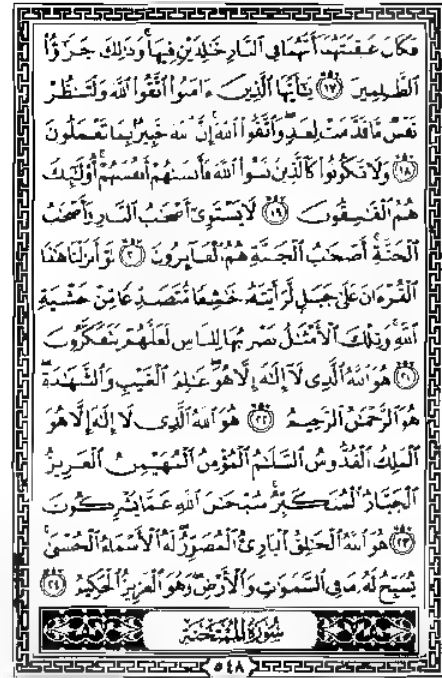 فَكَانَ عَٰقِبَتَهُمَآ أَنَّهُمَا فِى ٱلنَّارِ خَٰلِدَيْنِ فِيهَا ۚ وَذَٰلِكَ جَزَٰٓؤُا۟
ٱلظَّٰلِمِينَ ١٧ يَٰٓأَيُّهَا ٱلَّذِينَ ءَامَنُوا۟ ٱتَّقُوا۟ ٱللَّهَ وَلْتَنظُرْ
نَفْسٌ مَّا قَدَّمَتْ لِغَدٍ ۖ وَٱتَّقُوا۟ ٱللَّهَ ۚ إِنَّ ٱللَّهَ خَبِيرٌۢ بِمَا تَعْمَلُونَ
١٨ وَلَا تَكُونُوا۟ كَٱلَّذِينَ نَسُوا۟ ٱللَّهَ فَأَنسَىٰهُمْ أَنفُسَهُمْ ۚ أُو۟لَٰٓئِكَ
هُمُ ٱلْفَٰسِقُونَ ١٩ لَا يَسْتَوِىٓ أَصْحَٰبُ ٱلنَّارِ وَأَصْحَٰبُ
ٱلْجَنَّةِ ۚ أَصْحَٰبُ ٱلْجَنَّةِ هُمُ ٱلْفَآئِزُونَ ٢٠ لَوْ أَنزَلْنَا هَٰذَا
ٱلْقُرْءَانَ عَلَىٰ جَبَلٍ لَّرَأَيْتَهُۥ خَٰشِعًا مُّتَصَدِّعًا مِّنْ خَشْيَةِ
ٱللَّهِ ۚ وَتِلْكَ ٱلْأَمْثَٰلُ نَضْرِبُهَا لِلنَّاسِ لَعَلَّهُمْ يَتَفَكَّرُونَ
٢١ هُوَ ٱللَّهُ ٱلَّذِى لَآ إِلَٰهَ إِلَّا هُوَ ۖ عَٰلِمُ ٱلْغَيْبِ وَٱلشَّهَٰدَةِ ۖ
هُوَ ٱلرَّحْمَٰنُ ٱلرَّحِيمُ ٢٢ هُوَ ٱللَّهُ ٱلَّذِى لَآ إِلَٰهَ إِلَّا هُوَ
ٱلْمَلِكُ ٱلْقُدُّوسُ ٱلسَّلَٰمُ ٱلْمُؤْمِنُ ٱلْمُهَيْمِنُ ٱلْعَزِيزُ
ٱلْجَبَّارُ ٱلْمُتَكَبِّرُ ۚ سُبْحَٰنَ ٱللَّهِ عَمَّا يُشْرِكُونَ
٢٣ هُوَ ٱللَّهُ ٱلْخَٰلِقُ ٱلْبَارِئُ ٱلْمُصَوِّرُ ۖ لَهُ ٱلْأَسْمَآءُ ٱلْحُسْنَىٰ ۚ
يُسَبِّحُ لَهُۥ مَا فِى ٱلسَّمَٰوَٰتِ وَٱلْأَرْضِ ۖ وَهُوَ ٱلْعَزِيزُ ٱلْحَكِيمُ ٢٤
سُورَةُ المُمْتَحِنَةِ
٥٤٨